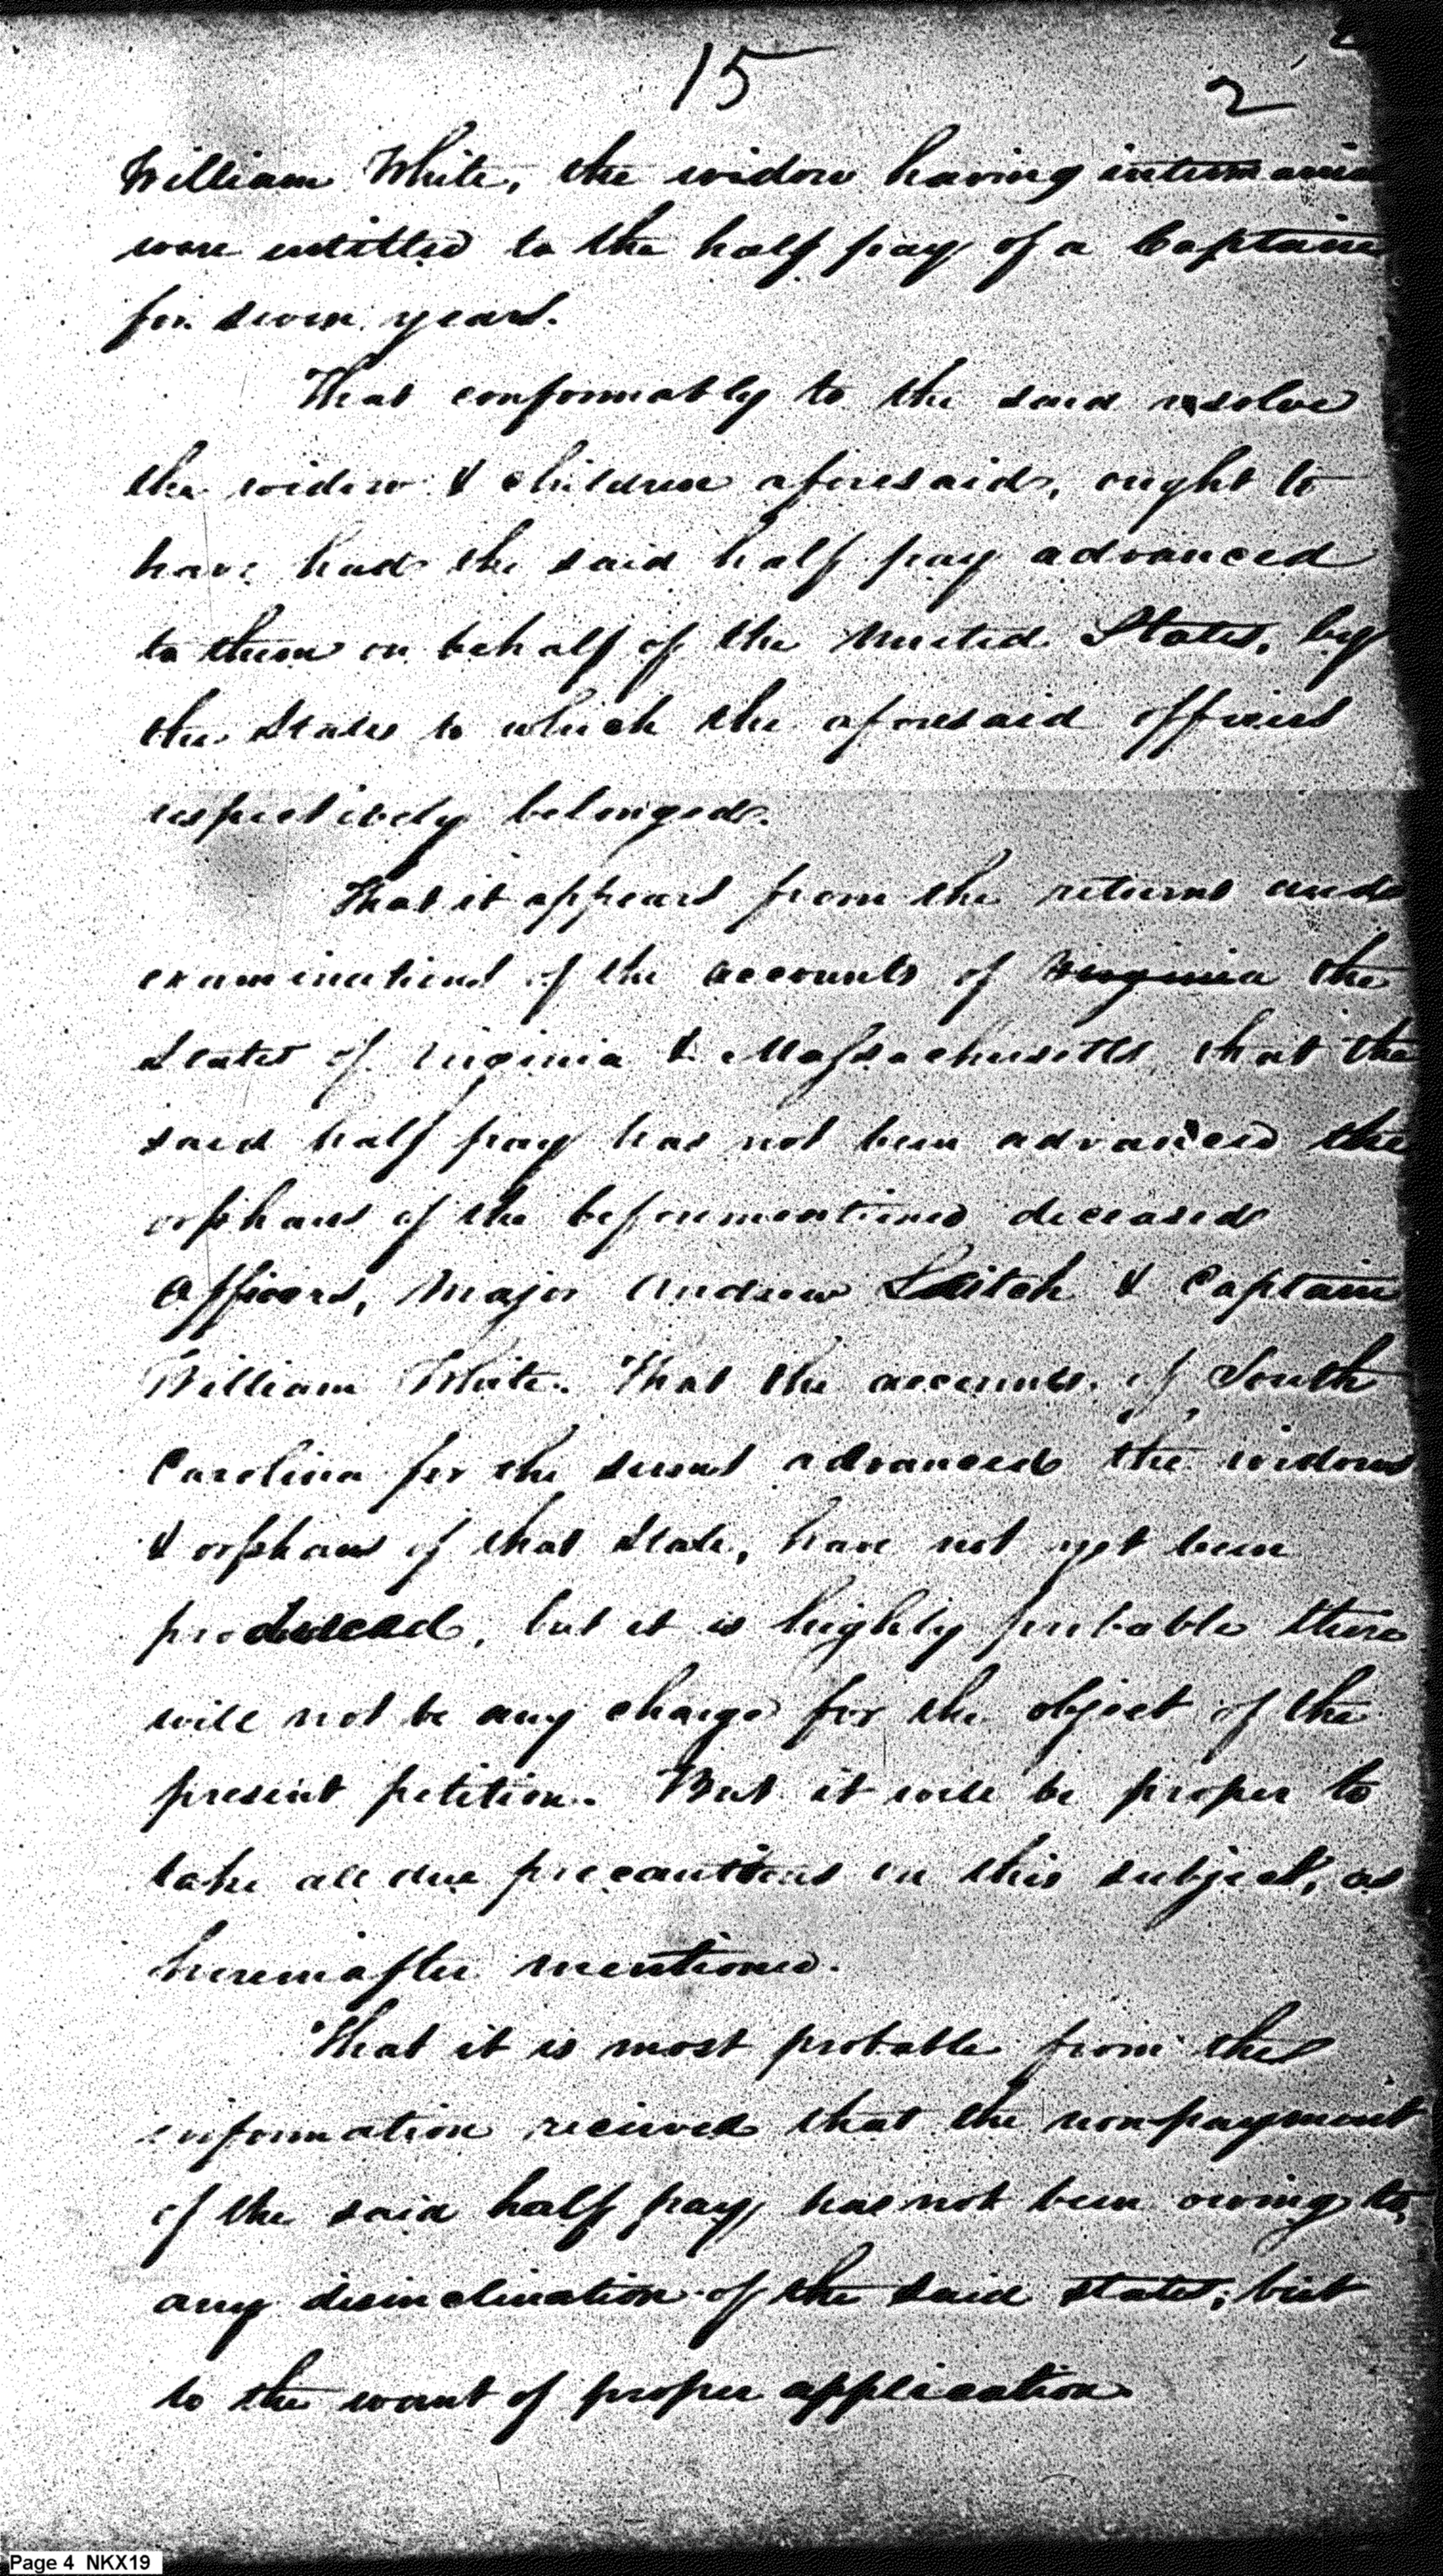 15
2
William White, the widow having intermarrie
were entitled to the half pay of a Captain
for seven years.
That conformably to the said resolve
the widow & children aforesaid, ought to
have had the said half pay advanced
to them on behalf of the United States, by
the States to which the aforesaid officers
respectively belonged.
That it appears from the returns and
examinations of the accounts of Virginia the
States of Virginia & Massachusetts that the
said half pay has not been advanced the
orphans of the beforementioned deceased
Officers, Major Andrew Leitch & Captain
William White. That the accounts of South
Carolina for the sums advanced the widows
& orphans of that State, have not yet been
produced, but it is highly probable there
will not be any charge for the object of the
present petition. But it will be proper to
take all due precautions in this subject, as
hereinafter mentioned.
That it is most probable from the
information received that the nonpayment
of the said half pay has not been owing to
any disinclination of the said states; but
to the want of proper application
Page 4 NKX19